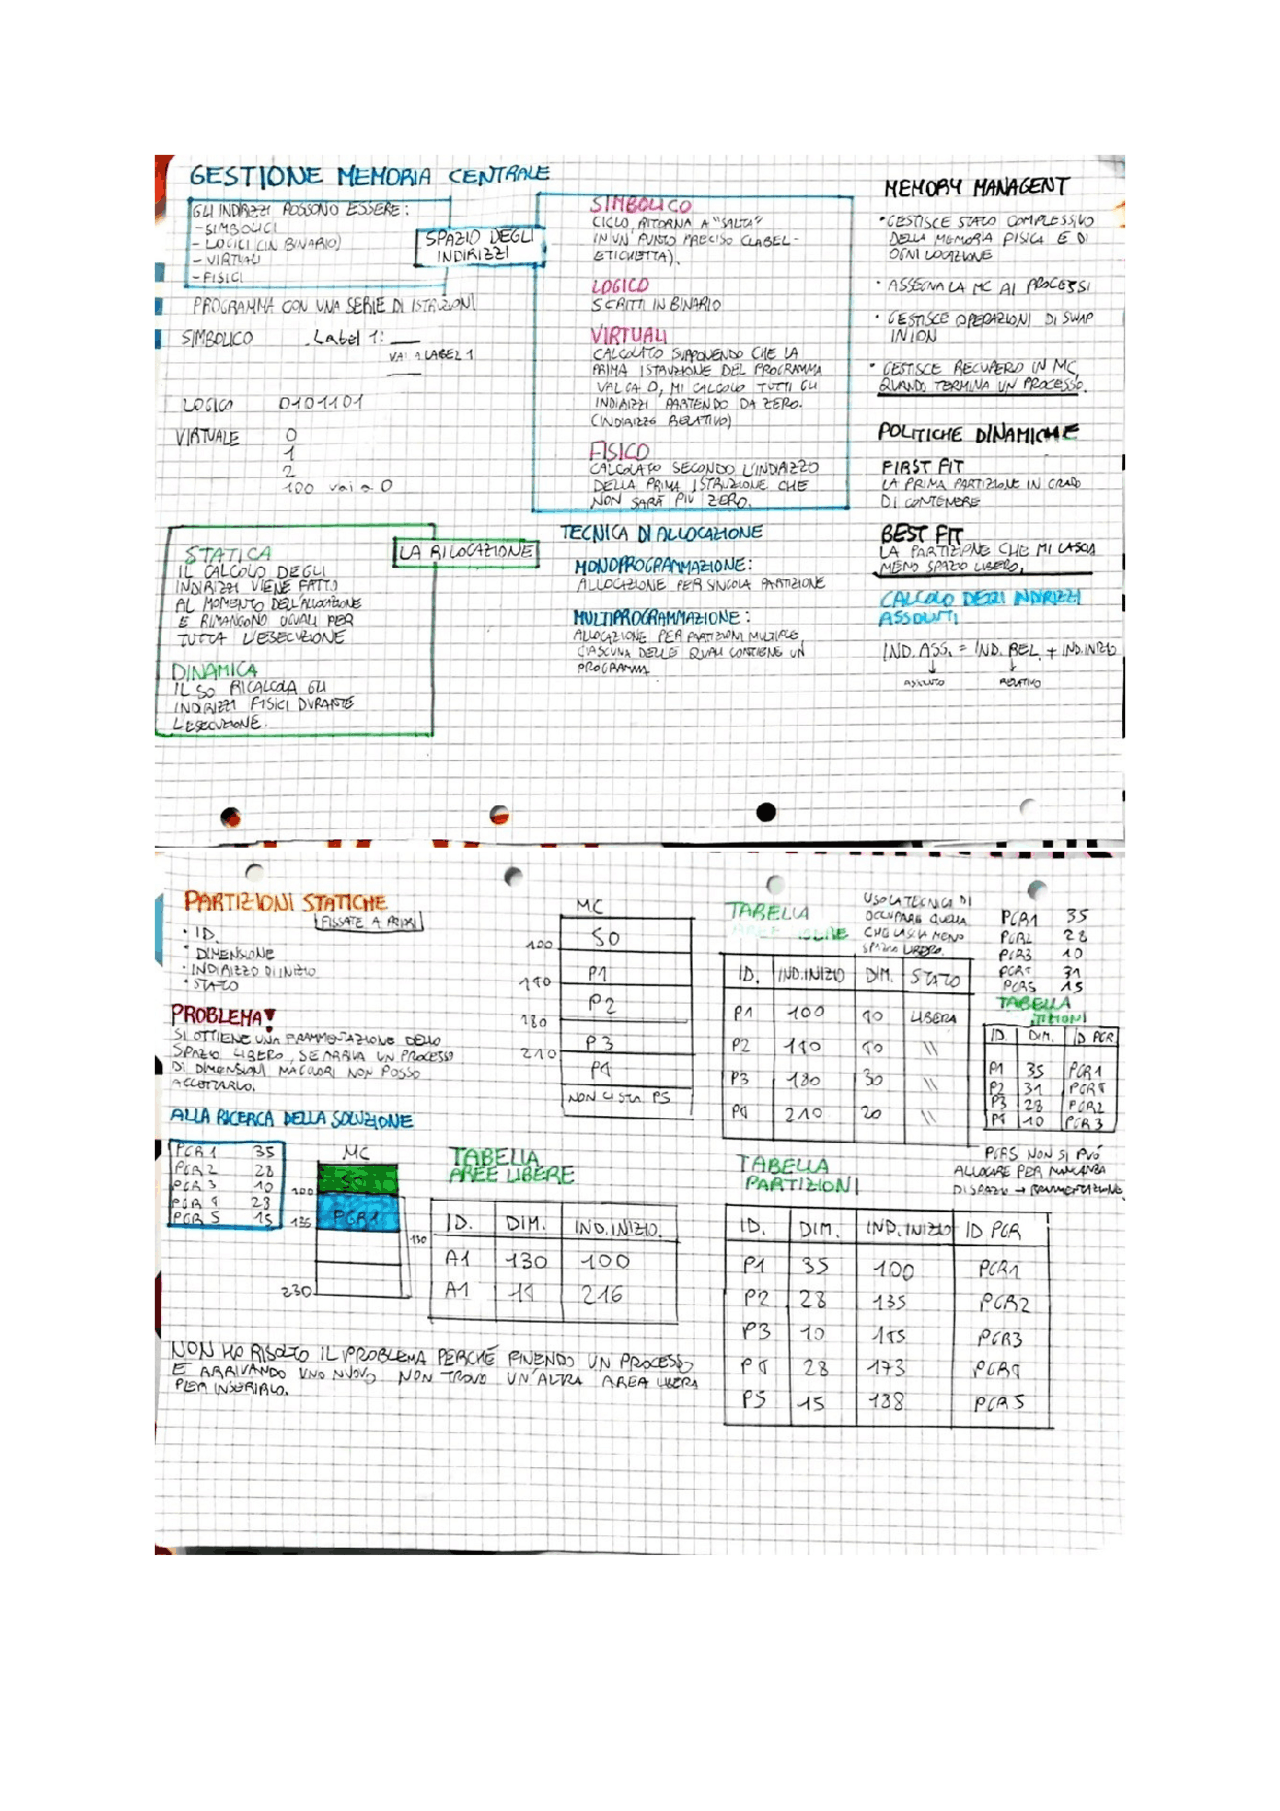 GESTIONE MEMORIA CENTRALE
GLI INDIRIZZI POSSONO ESSERE:
-SIMBOLICI
-LOGICI (IN BINARIO)
-VIRTUALI
-FISICI
SPAZIO DEGLI
INDIRIZZI
PROGRAMMA CON UNA SERIE DI ISTRUZIONI
SIMBOLICO Label 1: __
VAI A LABEL 1
LOGICO 0101101
VIRTUALE 0
1
2
100 vai a 0
SIMBOLICO
CICLO, RITORNA A "SALTA"
IN UN PUNTO PRECISO (LABEL-
ETICHETTA).
LOGICO
SCRITTI IN BINARIO
VIRTUALI
CALCOLATO SUPPONENDO CHE LA
PRIMA ISTRUZIONE DEL PROGRAMMA
VALGA 0, MI CALCOLO TUTTI GLI
INDIRIZZI PARTENDO DA ZERO.
(INDIRIZZO RELATIVO)
FISICO
CALCOLATO SECONDO L'INDIRIZZO
DELLA PRIMA ISTRUZIONE CHE
NON SARÀ PIÙ ZERO.
MEMORY MANAGENT
• GESTISCE STATO COMPLESSIVO
DELLA MEMORIA FISICA E DI
OGNI LOCAZIONE
• ASSEGNA LA MC AI PROCESSI
• GESTISCE OPERAZIONI DI SWAP
IN ION
• GESTISCE RECUPERO IN MC,
QUANDO TERMINA UN PROCESSO.
POLITICHE DINAMICHE
FIRST FIT
LA PRIMA PARTIZIONE IN GRADO
DI CONTENERE
BEST FIT
LA PARTIZIONE CHE MI LASCIA
MENO SPAZIO LIBERO.
CALCOLO DEGLI INDIRIZZI
ASSOLUTI
IND. ASS. = IND. REL. + IND. INIZIO
ASSOLUTO RELATIVO
LA RILOCAZIONE
STATICA
IL CALCOLO DEGLI
INDIRIZZI VIENE FATTO
AL MOMENTO DELL'ALLOCAZIONE
E RIMANGONO UGUALI PER
TUTTA L'ESECUZIONE
DINAMICA
IL SO RICALCOLA GLI
INDIRIZZI FISICI DURANTE
L'ESECUZIONE.
TECNICA DI ALLOCAZIONE
MONOPROGRAMMAZIONE:
ALLOCAZIONE PER SINGOLA PARTIZIONE
MULTIPROGRAMMAZIONE:
ALLOCAZIONE PER PARTIZIONI MULTIPLE,
CIASCUNA DELLE QUALI CONTIENE UN
PROGRAMMA
PARTIZIONI STATICHE
FISSATE A PRIORI
• ID.
• DIMENSIONE
• INDIRIZZO DI INIZIO
• STATO
PROBLEMA!
SI OTTIENE UNA FRAMMENTAZIONE DELLO
SPAZIO LIBERO, SE ARRIVA UN PROCESSO
DI DIMENSIONI MAGGIORI NON POSSO
ACCETTARLO.
MC
SO
100
P1
140
P2
180
P3
210
P4
NON CI STA P5
TABELLA
AREE LIBERE
USO LA TECNICA DI
OCCUPARE QUELLA
CHE LASCIA MENO
SPAZIO LIBERO.
ID. IND. INIZIO DIM. STATO
P1 100 40 LIBERA
P2 140 40 \\
P3 180 30 \\
P4 210 20 \\
PGR1 35
PGR2 28
PGR3 10
PGR4 31
PGR5 15
TABELLA
ID. DIM. ID PGR
P1 35 PGR1
P2 31 PGR4
P3 28 PGR2
P4 10 PGR3
PGR5 NON SI PUÒ
ALLOCARE PER MANCANZA
DI SPAZIO → FRAMMENTAZIONE.
ALLA RICERCA DELLA SOLUZIONE
PGR1 35
PGR2 28
PGR3 10
PGR4 28
PGR5 15
MC
100
PGR1
135
130
230
TABELLA
AREE LIBERE
ID. DIM. IND. INIZIO.
A1 130 100
A1 14 216
TABELLA
PARTIZIONI
ID. DIM. IND. INIZIO ID PGR
P1 35 100 PGR1
P2 28 135 PGR2
P3 10 PGR3
P4 28 173 PGR4
P5 15 PGR5
NON HO RISOLTO IL PROBLEMA PERCHÉ FINENDO UN PROCESSO
E ARRIVANDO UNO NUOVO NON TROVO UN'ALTRA AREA LIBERA
PER INSERIRLO.